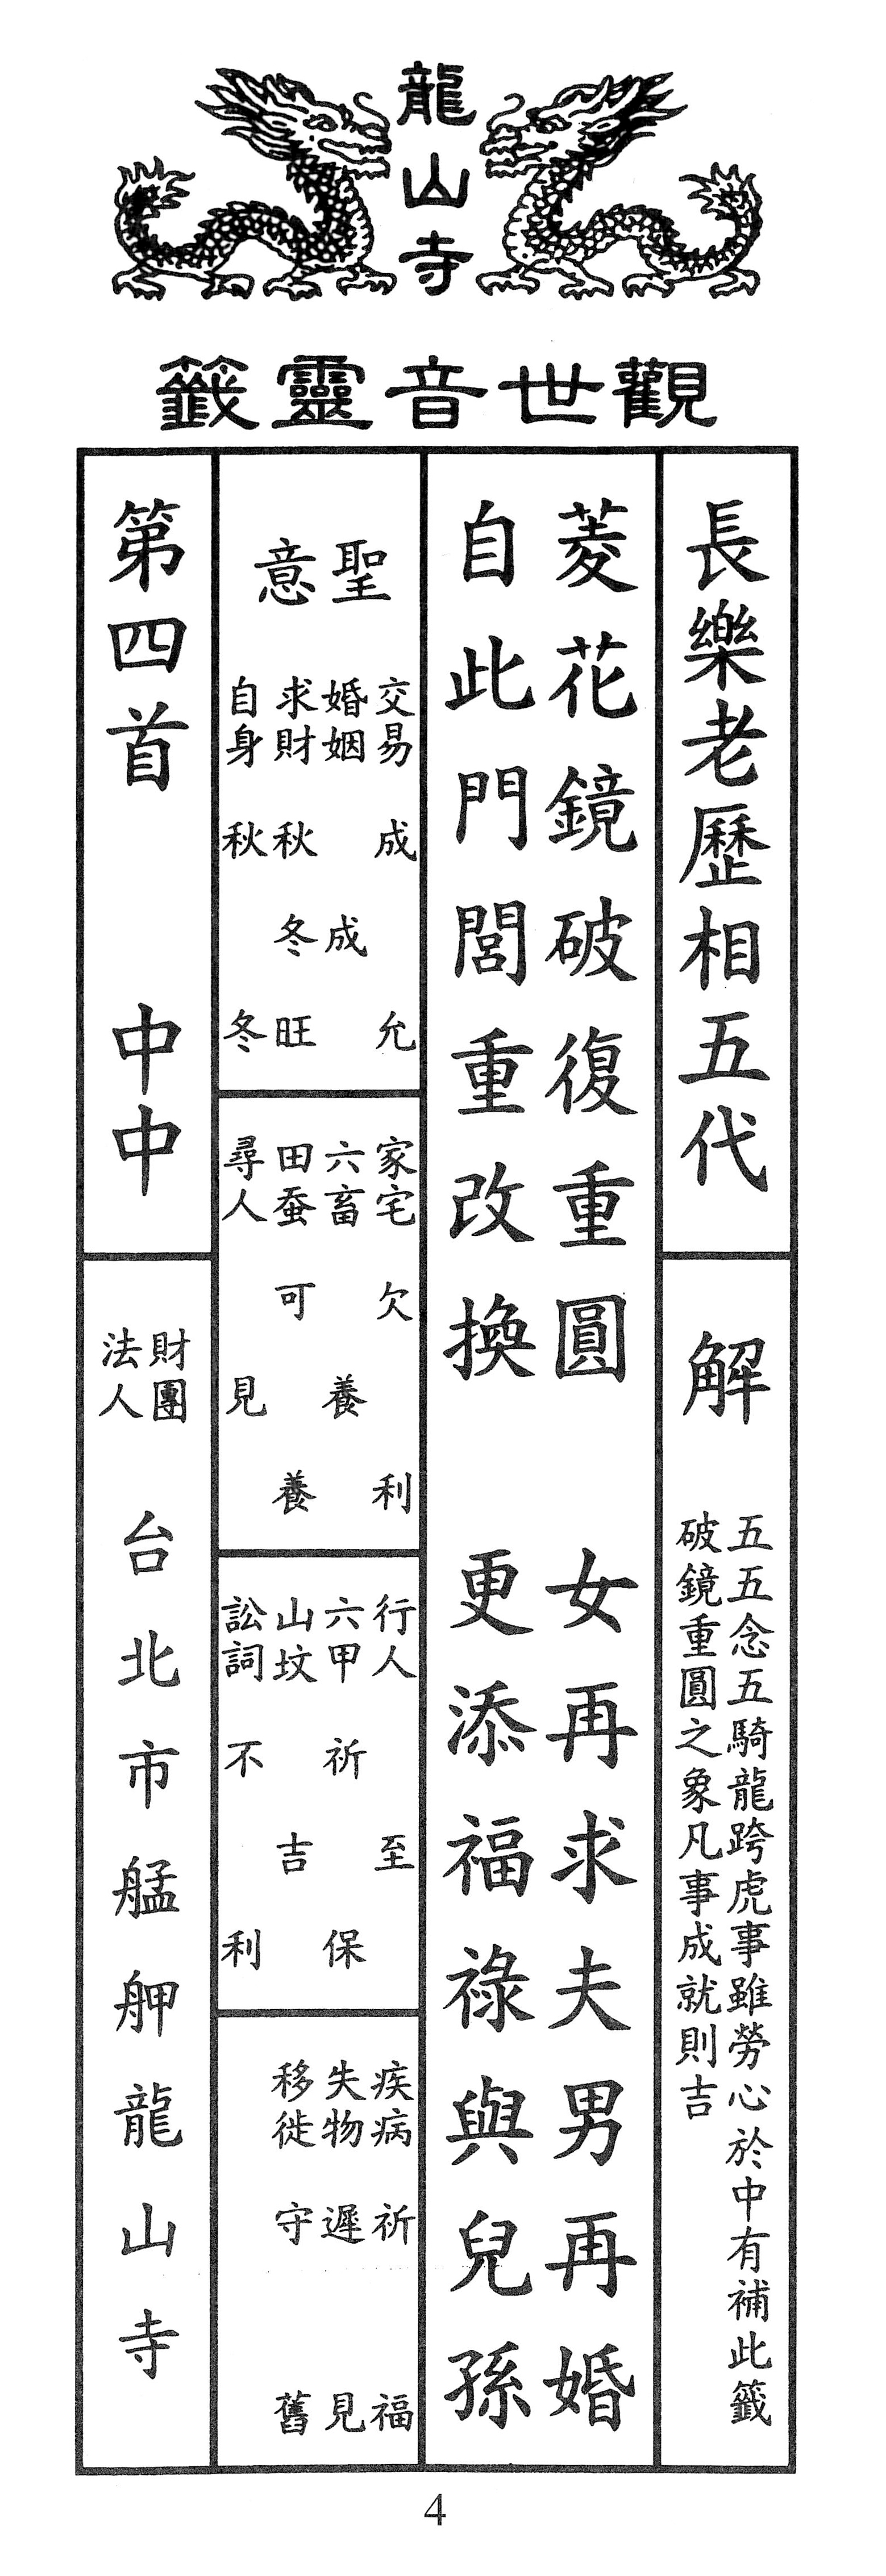 龍山寺
觀世音靈籤
長樂老歷相五代
解
五五念五騎龍跨虎事雖勞心於中有補此籤
破鏡重圓之象凡事成就則吉
菱花鏡破復重圓
女再求夫男再婚
自此門閭重改換
更添福祿與兒孫
聖意
交易成允
婚姻成
求財秋冬旺
自身秋冬
家宅欠利
六畜養
田蚕可養
尋人見
行人至
六甲祈保
山坟吉
訟詞不利
疾病祈福
失物遲見
移徙守舊
第四首
中中
財團
法人
台北市艋舺龍山寺
4